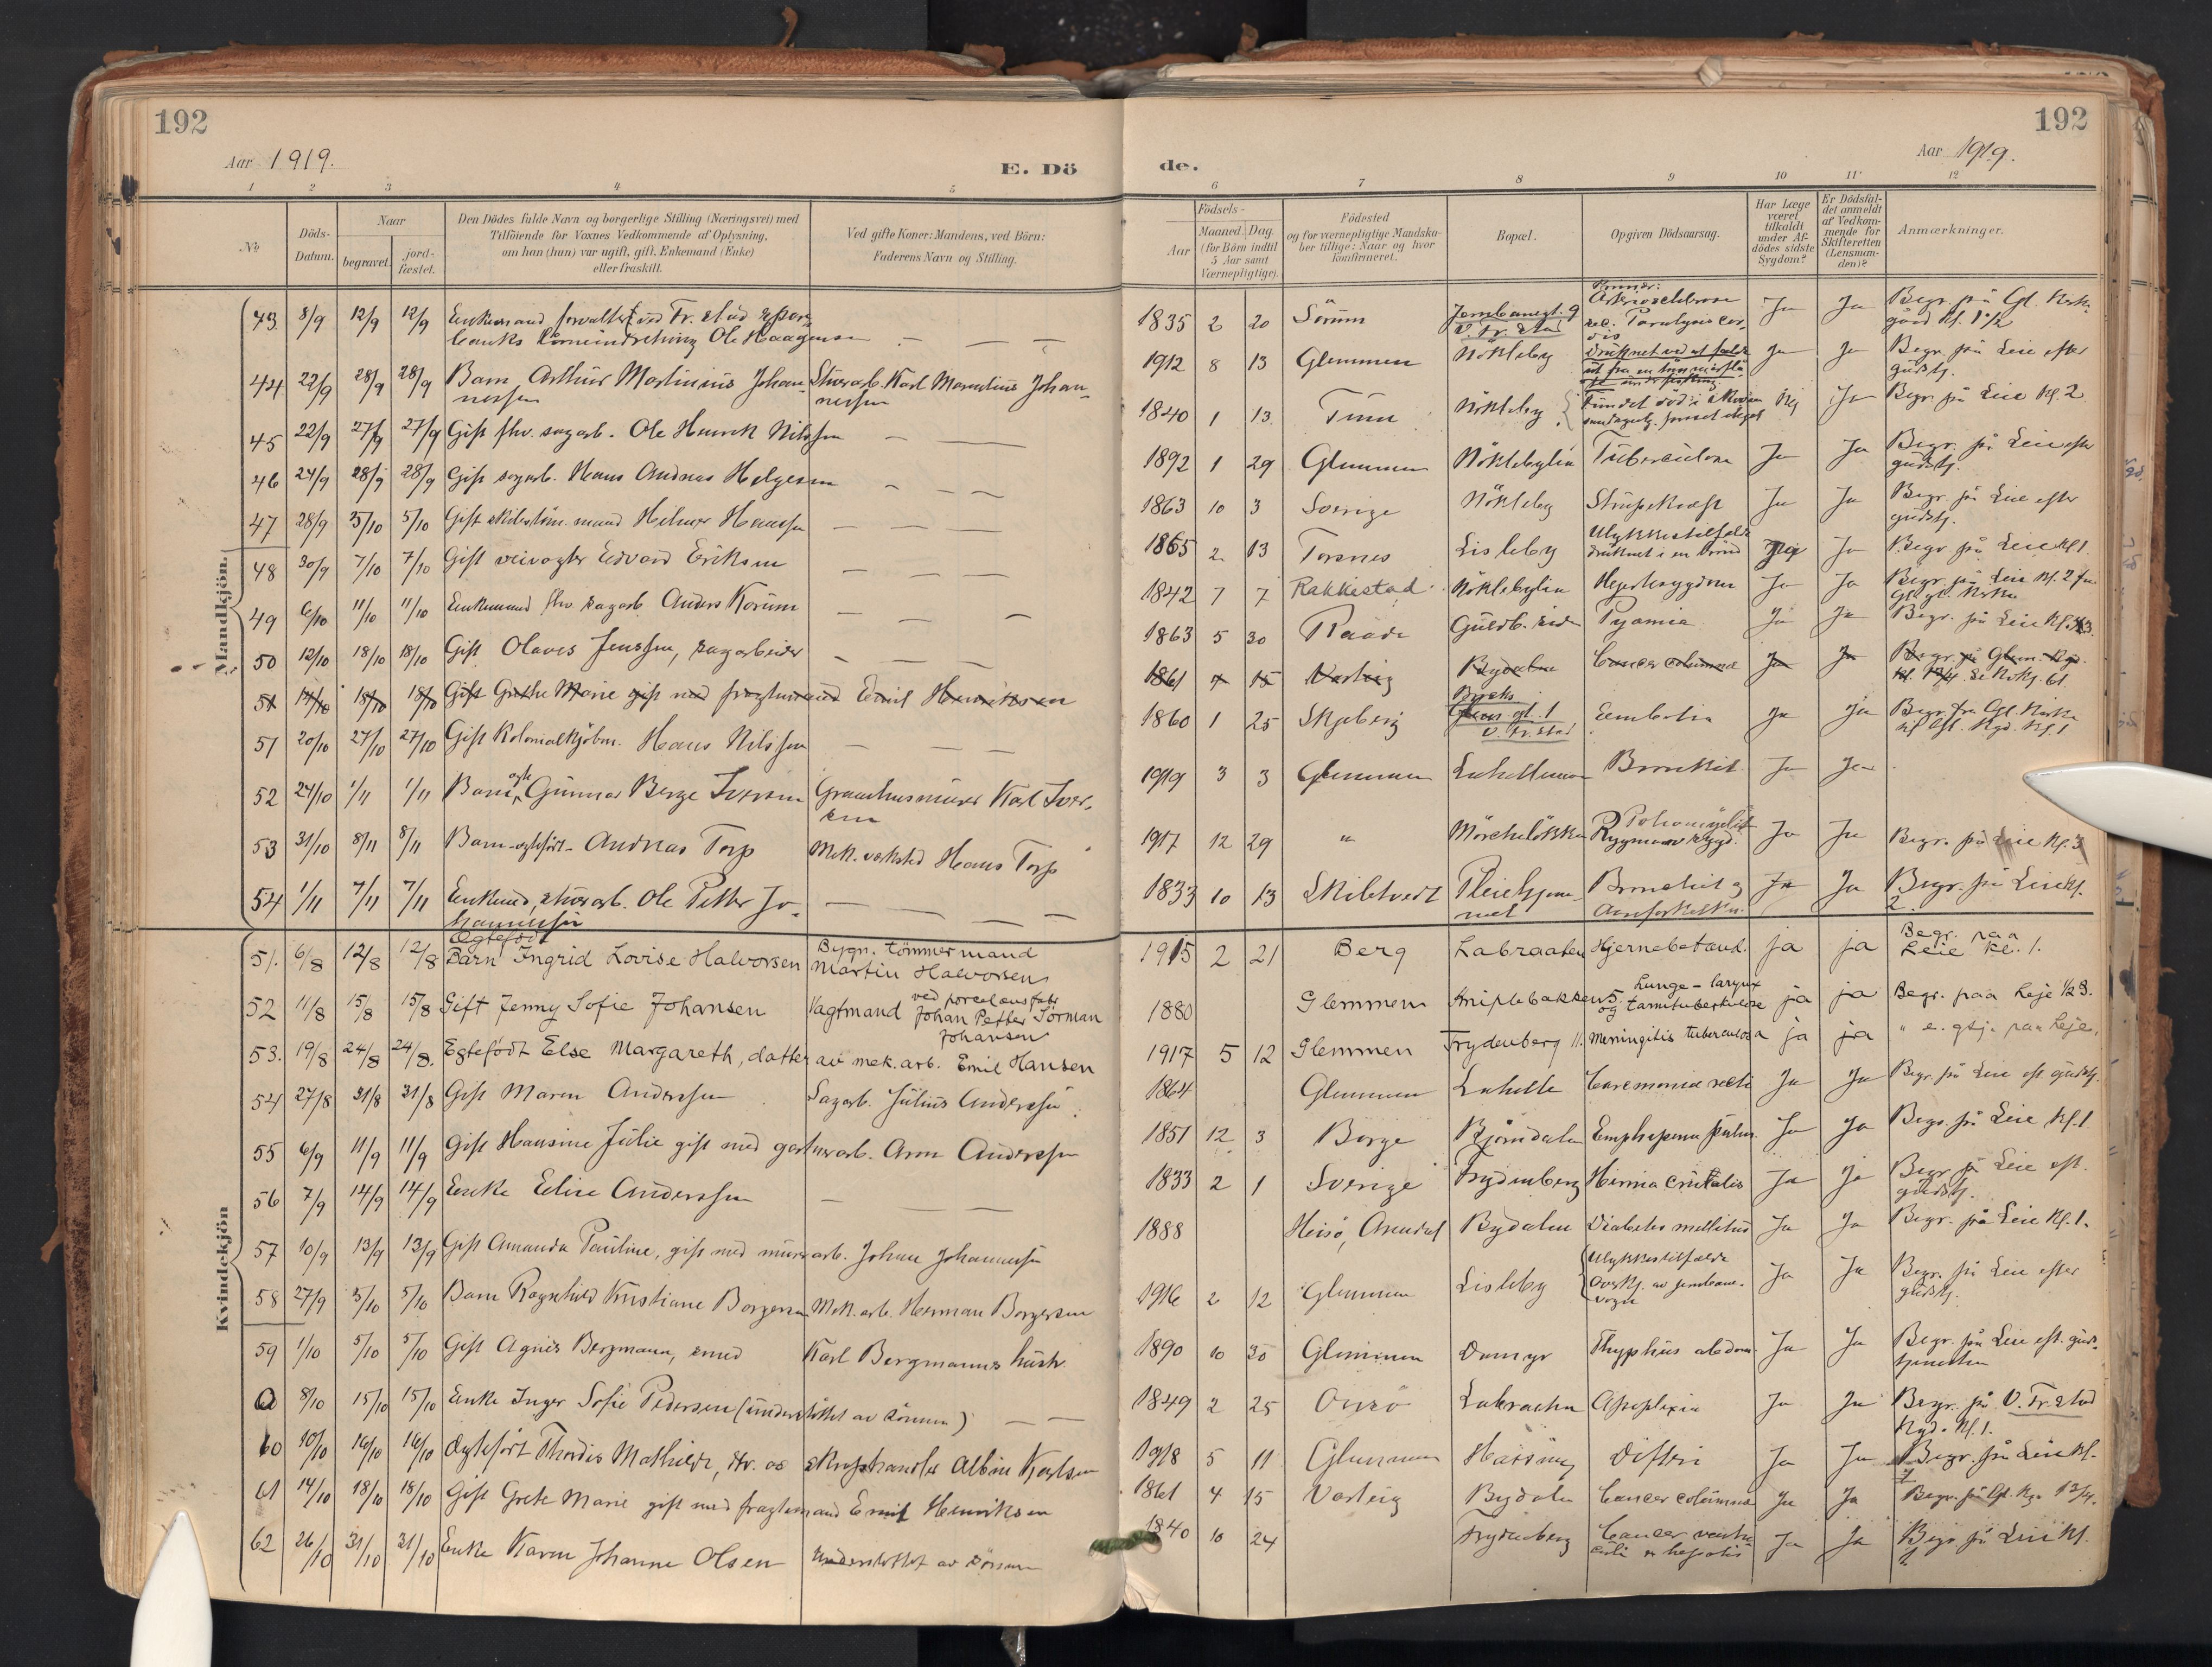 192
Aar 1919.
E. Dö
1 2 3 4 5
No
Döds-Datum.
Naar
begravet.
jordfæstet.
Den Dödes fulde Navn og borgerlige Stilling (Næringsvei) med
Tilföiende for Voxnes Vedkommende af Oplysning,
om han (hun) var ugift, gift, Enkemand (Enke)
eller fraskilt.
Ved gifte Koner: Mandens, ved Börn:
Faderens Navn og Stilling.
Mandkjön.
43 8/9 12/9 12/9 Enkemand forvalter ved Fr.stad Spare
banks Ole Haagensen
44 22/9 28/9 28/9 Barn Arthur Martinius Johan
nessen
Karl Johan
nessen
45 22/9 27/9 27/9 Gift fhv. sagarb. Ole Henrik Nilssen
46 24/9 28/9 28/9 Gift sagarb. Hans Andreas Helgesen
47 28/9 5/10 5/10 Gift mand Hilmer Hanssen
48 30/9 7/10 7/10 Gift veivogter Edvard Eriksen
49 6/10 11/10 11/10 Enkemand fhv sagarb Anders Korum
50 12/10 18/10 18/10 Gift Olaves Jenssen, sagarbeider
51 14/10 18/10 18/10 Gift Grethe Marie gift med fragtemand Emil Henriksen
51 20/10 27/10 27/10 Gift Kolonialkjöbm. Hans Nilssen
52 24/10 1/11 1/11 Barn, ægte Gunnar Berge Iversen
Karl Iver
sen
53 31/10 8/11 8/11 Barn - ægtefödt - Andreas Torp
Mek. verksted Hans Torp
54 1/11 7/11 7/11 Enkemd, Ole Petter Jo-
hannessen
Kvindekjön
51. 6/8 12/8 12/8 Ægtefödt
Barn Ingrid Lovise Halvorsen
Bygn. tömmermand
Martin Halvorsen
52 11/8 15/8 15/8 Gift Jenny Sofie Johansen
Vagtmand ved porcelænsfabr
Johan Petter Sörman
Johansen
53. 19/8 24/8 24/8. Egtefödt Else Margareth, datter av mek. arb. Emil Hansen
54 27/8 31/8 31/8 Gift Maren Anderssen
Sagarb. Julius Anderssen.
55 6/9 11/9 11/9 Gift Hansine Julie gift med gartnerarb. Arne Anderssen
56 7/9 14/9 14/9 Enke Eline Anderssen
57 10/9 13/9 13/9 Gift Amanda Pauline, gift med murarb. Johan Johannessen
58 27/9 5/10 5/10 Barn Ragnhild Kristiane Borgersen
Mek. arb. Herman Borgersen
59 1/10 5/10 5/10 Gift Agnes Bergmann, smed
Karl Bergmanns hustr.
8/10 15/10 15/10 Enke Inger Sofie Pedersen (understöttet av sönnen)
60 10/10 16/10 16/10 Ægtefödt Thordis Mathilde, dtr. av skraphandler Albin Karlsen
61 14/10 18/10 18/10 Gift Grete Marie gift med fragtemand Emil Henriksen
62 26/10 31/10 31/10 Enke Karen Johanne Olsen
understöttet av sönnen
192
Aar 1919.
de.
6 7 8 9 10 11 12
Födsels-
Aar
Maaned. Dag.
(for Börn indtil
5 Aar samt
Værnepligtige).
Födested
og for værnepligtige Mandskaber tillige: Naar og hvor
konfirmeret.
Bopæl.
Opgiven Dödsaarsag.
Har Læge
været
tilkaldt
under Afdödes sidste
Sygdom?
Er Dödsfaldet anmeldt
af Vedkommende for
Skifteretten
(Lensmanden)?
Anmærkninger.
1835 2 20 Sörum Jernbanegt. 9
V. Fr.stad Arteriosclerose
Paralysis cor-
dis Ja Ja Begr. på Gl. Kirke-
gård
1912 8 13 Glemmen Nökleby Druknet ved at falde
ut fra en
Ja Ja Begr. på Leie efter
gudstj.
1840 1 13 Tune Nökleby Fundet död i skogen
Nej Ja Begr. på Leie kl. 2
1892 1 29 Glemmen Nöklebylia Tuberculose Ja Ja Begr. på Leie efter
gudstj.
1863 10 3 Sverige Nökleby Strupekræft Ja Ja Begr. på Leie efter
gudstj.
1865 2 13 Torsnes Lisleby Ulykkestilfælde
druknet i en brönd Nej Ja Begr på Leie kl 1.
1842 7 7 Rakkestad Nöklebylia Hjertesygdom Ja Ja Begr. på Leie kl. 2
1863 5 30 Raade Guldb. sid Pyämia Ja Ja Begr. på Leie kl. 3.
1861 4 15 Varteig Bydalen Cancer columnæ Ja Ja Begr på Glem. Kgd.
Se No kj. 61
1860 1 25 Skjeberg
V. Fr.stad Embolia Ja Ja Begr. fra Gl. Kirke
Kl. 1
1919 3 3 Glemmen Labellemoen Bronkit Ja Ja
1917 12 29 " Mörchelökka Poliomyelit
Rygmarvssygd. Ja Ja Begr. på Leie Kl. 3
1833 10 13 Skibtvedt Pleiehjem-
met Bronchit og
Ja Ja Begr. på Leie kl.
2.
1915 2 21 Berg Labraaten Hjernebetænd. ja ja Begr. paa
Leie kl. 1.
1880 Glemmen Kniplebakken 5. Lunge-larynx
og tarmtuberkulose ja ja Begr. paa Leje 1/2 3.
1917 5 12 Glemmen Frydenberg 11. Meningitis tuberculosa ja ja " e. gtj. paa Leje.
1864 Glemmen Labella recti Ja Ja Begr. på Leie eft. gudstj.
1851 12 3 Borge Bjørndalen Emphysema pulm. Ja Ja Begr. på Leie kl. 1
1833 2 1 Sverige Frydenberg Hernia cruralis Ja Ja Begr på Leie eft.
gudstj.
1888 Heisö, Arendal Bydalen Diabetes mellitus Ja Ja Begr. på Leie Kl. 1.
1916 2 12 Glemmen Lisleby Ulykkestilfælde
Overkj. av jernbane-
vogn Ja Ja Begr. på Leie efter
gudstj.
1890 10 30 Glemmen Damyr Thyphus abdom. Ja Ja Begr. på Leie eft. guds-
tjenesten
1849 2 25 Onsö Labraaten Apoplexia Ja Ja Begr. på V. Fr.stad
Kgd. Kl. 1.
1918 5 11 Glemmen Difteri Ja Ja Begr. på Leie kl.
1861 4 15 Varteig Bydalen Cancer columnæ Ja Ja Begr. på Gl. Kg.
1840 10 24 Frydenberg Cancer ventri-
culi & hepatis Ja Ja Begr på Leie kl.